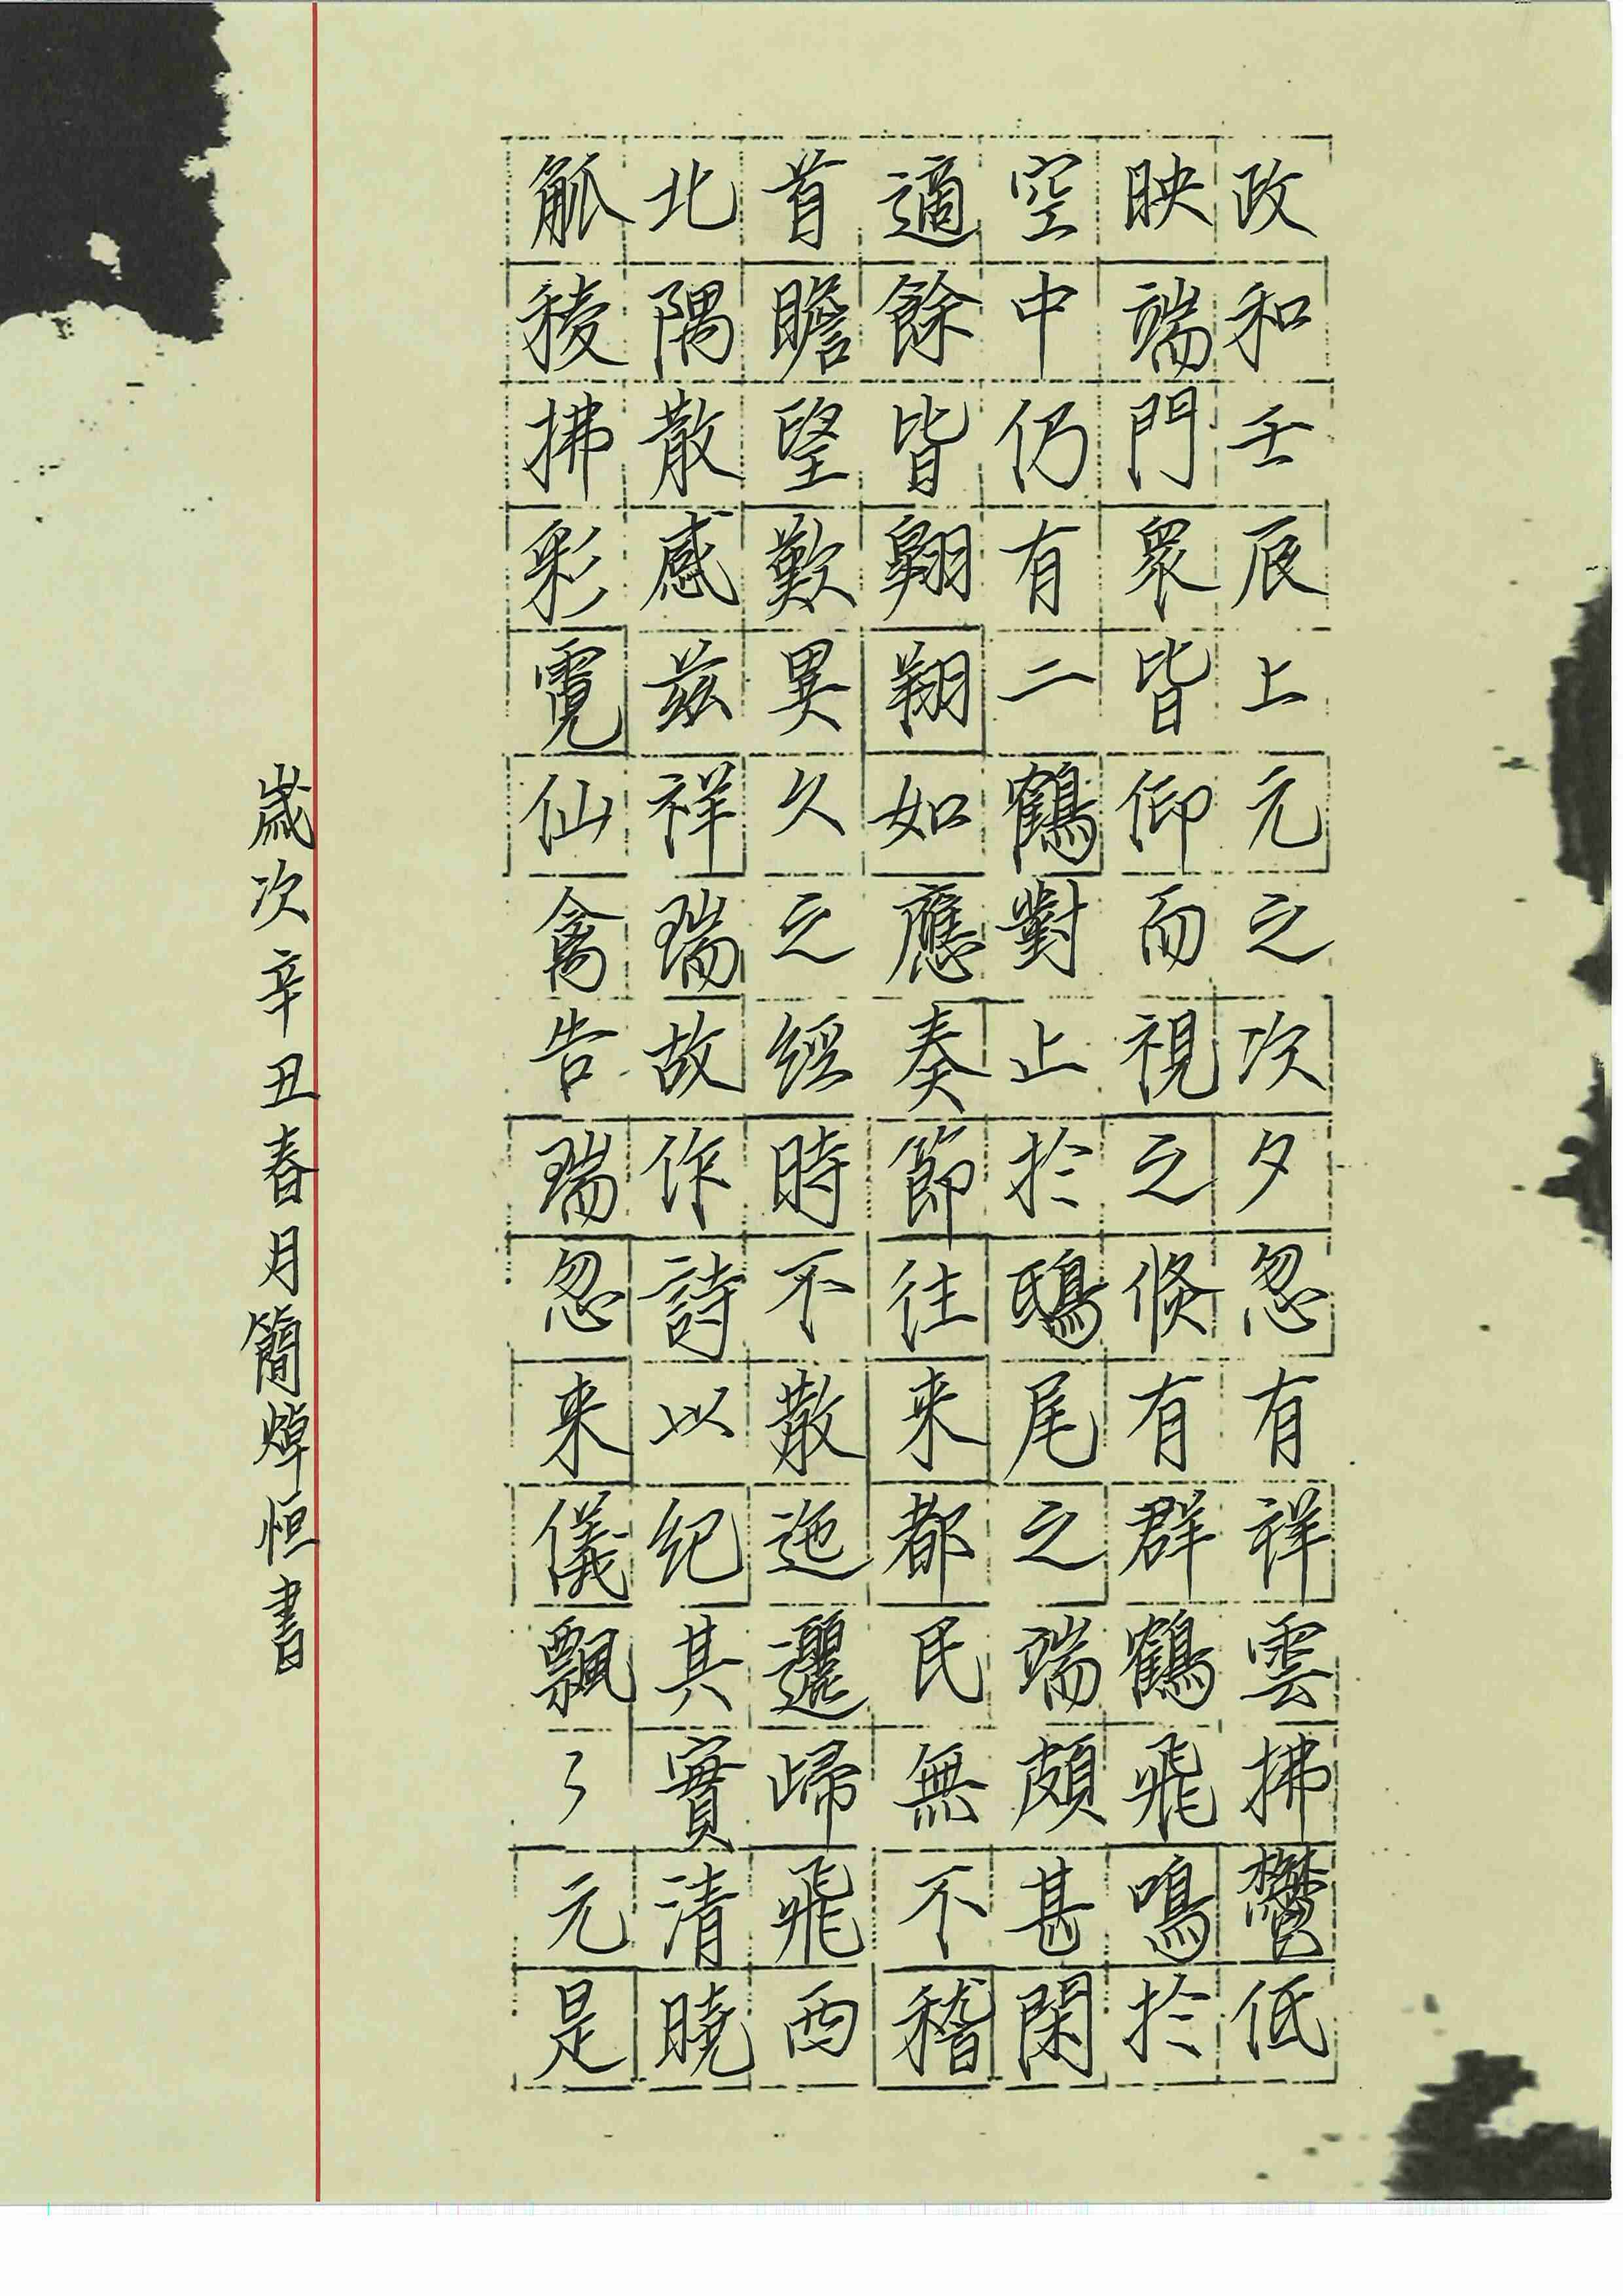 政和壬辰上元之次夕忽有祥雲拂欝低
映端門衆皆仰而視之倐有群鶴飛鳴於
空中仍有二鶴對止於鴟尾之端頗甚閑
適餘皆翱翔如應奏節往来都民無不稽
首瞻望歎異久之經時不散迤邐歸飛西
北隅散感茲祥瑞故作詩以紀其實清曉
觚稜拂彩霓仙禽告瑞忽来儀飄々元是
歲次辛丑春月簡焯恒書